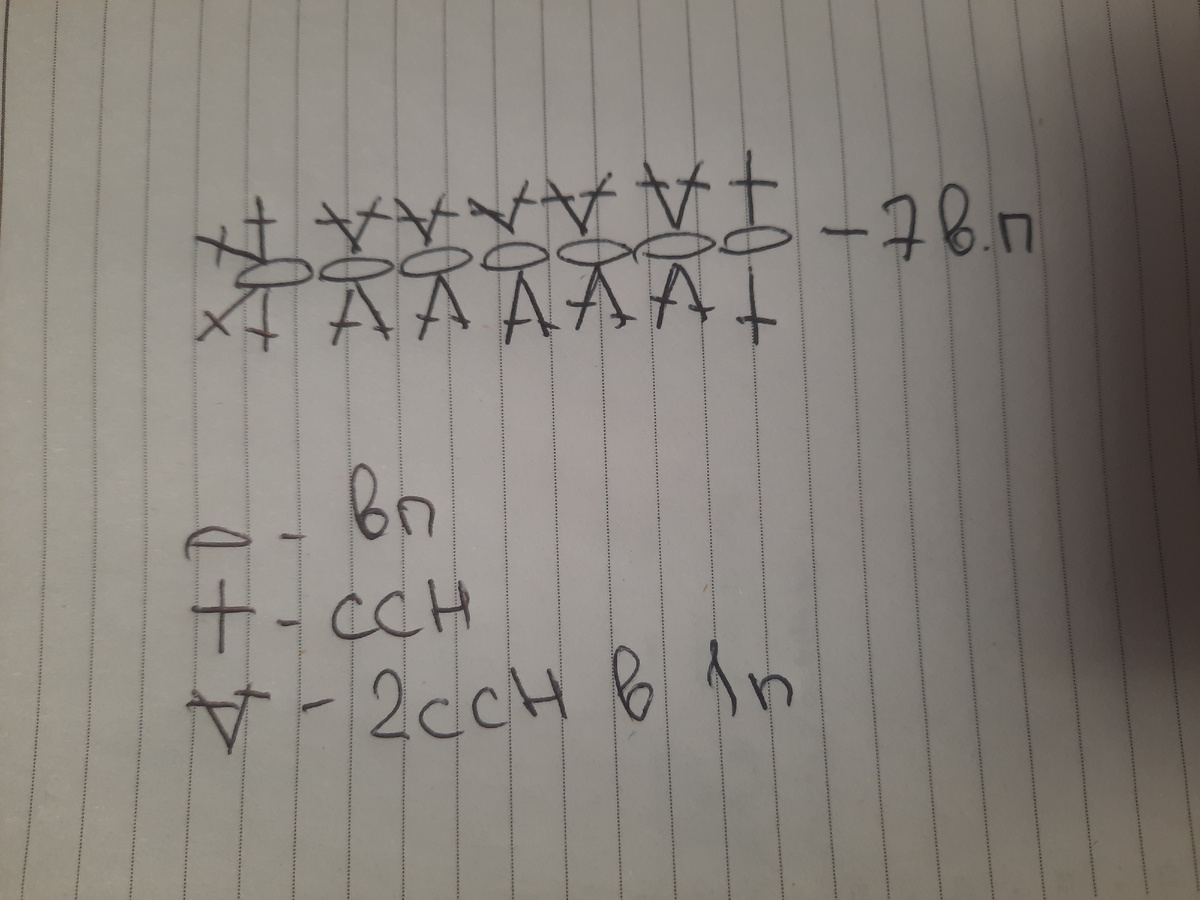 - 7 в.п
- вп
- ссн
- 2ссн в 1п